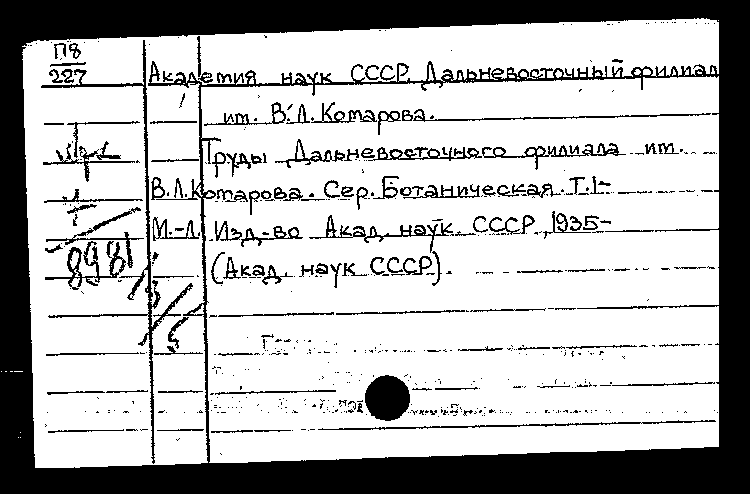 П8
227
Академия наук СССР. Дальневосточный филиал
им. В.Л. Комарова.
Труды Дальневосточного филиала им.
В.Л. Комарова. Сер. Ботаническая. Т.1-
М.-Л. Изд-во Акад. наук СССР, 1935-
(Акад. наук СССР).
8981